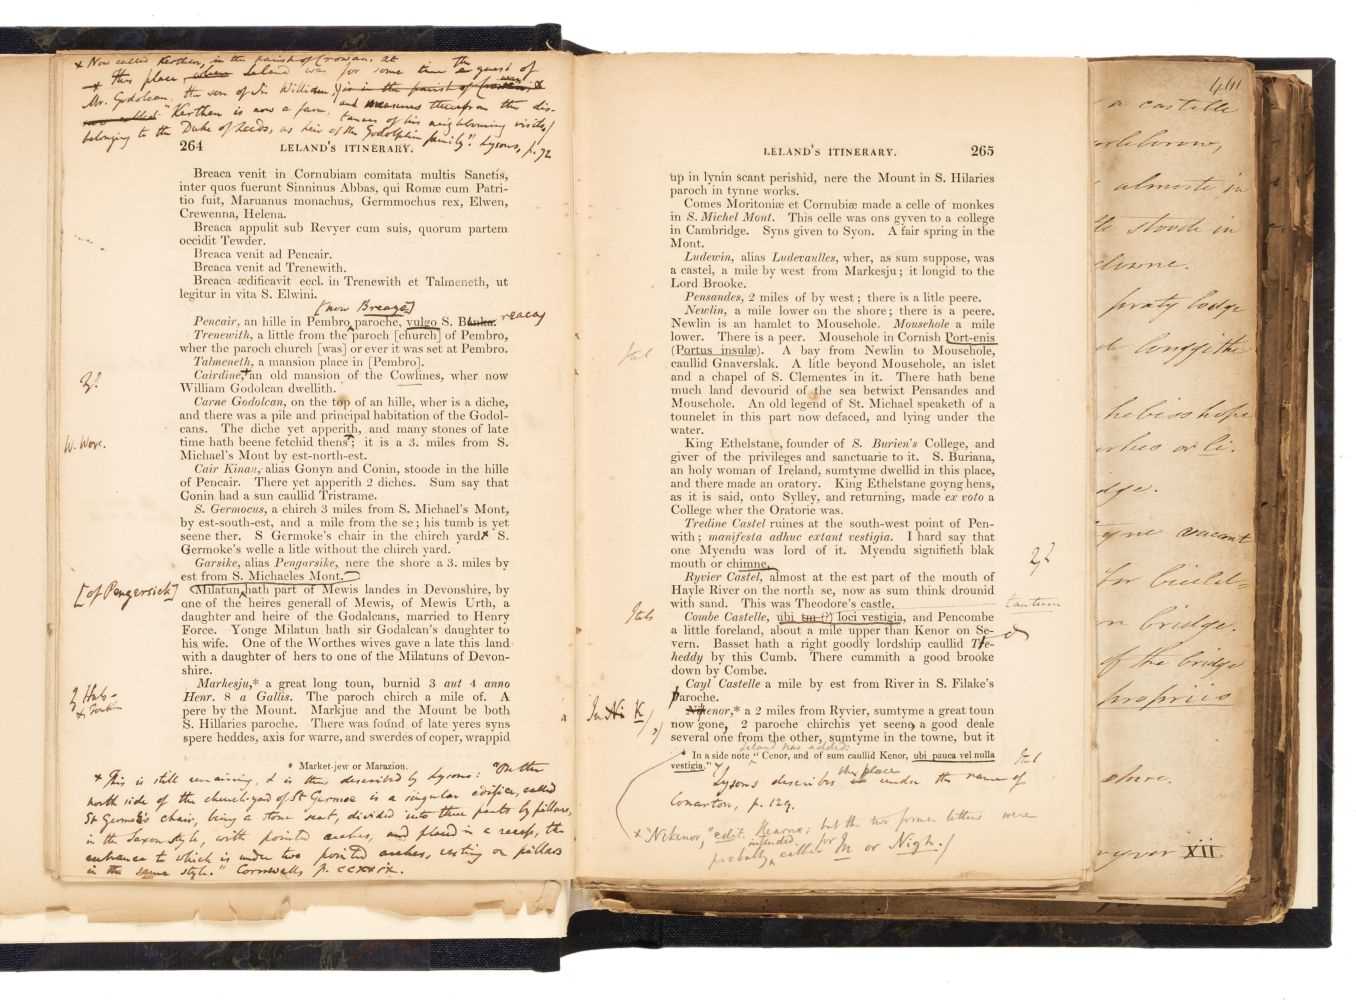 + Now called Kerthen, in the parish of Crowan. at
+ this place, when Leland was for some time the guest of
Mr. Godolcan, the son of Sir William, is in the parish of
"Kerthen is now a farm, and measures therefrom the dis-
belonging to the Duke of Leeds, as heir of the Godolphin family." Lysons, p. 72
tances of his neighbouring visits/
264
LELAND'S ITINERARY.
Breaca venit in Cornubiam comitata multis Sanctis,
inter quos fuerunt Sinninus Abbas, qui Romæ cum Patri-
tio fuit, Maruanus monachus, Germmochus rex, Elwen,
Crewenna, Helena.
Breaca appulit sub Revyer cum suis, quorum partem
occidit Tewder.
Breaca venit ad Pencair.
Breaca venit ad Trenewith.
Breaca ædificavit eccl. in Trenewith et Talmeneth, ut
legitur in vita S. Elwini.
[now Breage]
Pencair, an hille in Pembro paroche, vulgo S. Banka. reacay
Trenewith, a little from the paroch [church] of Pembro,
wher the paroch church [was] or ever it was set at Pembro.
Talmeneth, a mansion place in [Pembro].
Cairdine,+ an old mansion of the Cowlines, wher now
William Godolcan dwellith.
Carne Godolcan, on the top of an hille, wher is a diche,
and there was a pile and principal habitation of the Godol-
cans. The diche yet apperith, and many stones of late
time hath beene fetchid thens; it is a 3. miles from S.
W. Worc.
Michael's Mont by est-north-est.
Cair Kinau, alias Gonyn and Conin, stoode in the hille
of Pencair. There yet apperith 2 diches. Sum say that
Conin had a sun caullid Tristrame.
S. Germocus, a chirch 3 miles from S. Michael's Mont,
by est-south-est, and a mile from the se; his tumb is yet
seene ther. S Germoke's chair in the chirch yard x S.
Germoke's welle a litle without the chirch yard.
Garsike, alias Pengarsike, nere the shore a 3. miles by
est from S. Michaeles Mont.
[of Pengersick]
Milatun hath part of Mewis landes in Devonshire, by
one of the heires generall of Mewis, of Mewis Urth, a
daughter and heire of the Godalcans, married to Henry
Force. Yonge Milatun hath sir Godalcan's daughter to
his wife. One of the Worthes wives gave a late this land
with a daughter of hers to one of the Milatuns of Devon-
shire.
Marhesju,* a great long toun, burnid 3 aut 4 anno
Henr. 8 a Gallis. The paroch chirch a mile of. A
pere by the Mount. Markjue and the Mount be both
S. Hillaries paroche. There was found of late yeres syns
spere heddes, axis for warre, and swerdes of coper, wrappid
* Market-jew or Marazion.
+ This is still remaining, & is thus described by Lysons: "On the
north side of the church-yard of St Germoe is a singular edifice, called
St Germoe's chair, being a stone seat, divided into three parts by pillars,
in the Saxon style, with pointed arches, and placed in a recess, the
entrance to which is under two pointed arches, resting on pillars
in the same style." Cornwall, p. ccxxix.
LELAND'S ITINERARY.
265
up in lynin scant perishid, nere the Mount in S. Hilaries
paroch in tynne works.
Comes Moritoniæ et Cornubiæ made a celle of monkes
in S. Michel Mont. This celle was ons gyven to a college
in Cambridge. Syns given to Syon. A fair spring in the
Mont.
Ludewin, alias Ludevaulles, wher, as sum suppose, was
a castel, a mile by west from Markesju; it longid to the
Lord Brooke.
Pensandes, 2 miles of by west; there is a litle peere.
Newlin, a mile lower on the shore; there is a peere.
Newlin is an hamlet to Mousehole. Mousehole a mile
lower. There is a peer. Mousehole in Cornish Port-enis
Ital
(Portus insulæ). A bay from Newlin to Mousehole,
caullid Gnaverslak. A litle beyond Mousehole, an islet
and a chapel of S. Clementes in it. There hath bene
much land devourid of the sea betwixt Pensandes and
Mouschole. An old legend of St. Michael speaketh of a
tounelet in this part now defaced, and lying under the
water.
King Ethelstane, founder of S. Burien's College, and
giver of the privileges and sanctuarie to it. S. Buriana,
an holy woman of Ireland, sumtyme dwellid in this place,
and there made an oratory. King Ethelstane goyng hens,
as it is said, onto Sylley, and returning, made ex voto a
College wher the Oratorie was.
Tredine Castel ruines at the south-west point of Pen-
with; manifesta adhuc extant vestigia. I hard say that
one Myendu was lord of it. Myendu signifieth blak
mouth or chimne.
Ryvier Castel, almost at the est part of the mouth of
Hayle River on the north se, now as sum think drounid
with sand. This was Theodore's castle.
tantum
Itals
Combe Castelle, ubi tm (?) loci vestigia, and Pencombe
a little foreland, about a mile upper than Kenor on Se-
vern. Basset hath a right goodly lordship caullid Tre-
heddy by this Cumb. There cummith a good brooke
down by Combe.
Cayl Castelle a mile by est from River in S. Filake's
paroche.
Nikenor,* a 2 miles from Ryvier, sumtyme a great toun
now gone, 2 paroche chirchis yet seene, a good deale
several one from the other, sumtyme in the towne, but it
Leland has added:
* In a side note "Cenor, and of sum caullid Kenor, ubi pauca vel nulla
Ital
vestigia."
Lysons describes the place under the name of
Conarton, p. 129.
x "Nikenor," edit. Hearne; but the two former letters were
probably intended for M or Nigh./
461
a castelle
almoste in
stoode in
praty lodge
li.
vacant
on bridge.
of the bridge
propriis
shire.
ryver xii